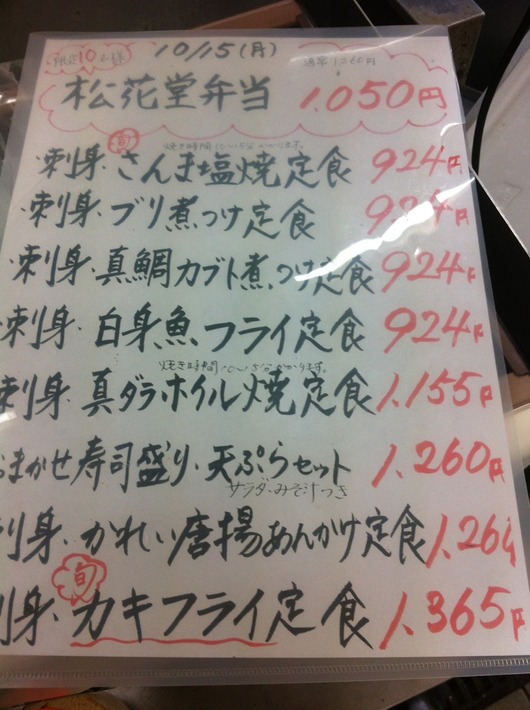 限定10名様 10/15(月) 通常1260円
松花堂弁当 1,050円
焼き時間10〜15分かかります。
・刺身・旬さんま塩焼定食 924円
・刺身・ブリ煮つけ定食 924
・刺身・真鯛カブト煮つけ定食 924円
刺身・白身魚フライ定食 924円
焼き時間10〜15分かかります。
刺身・真ダラホイル焼定食 1,155円
おまかせ寿司盛り・天ぷらセット 1,260円
サラダ・みそ汁つき
刺身・かれい唐揚あんかけ定食 1,260
旬
刺身・カキフライ定食 1,365円